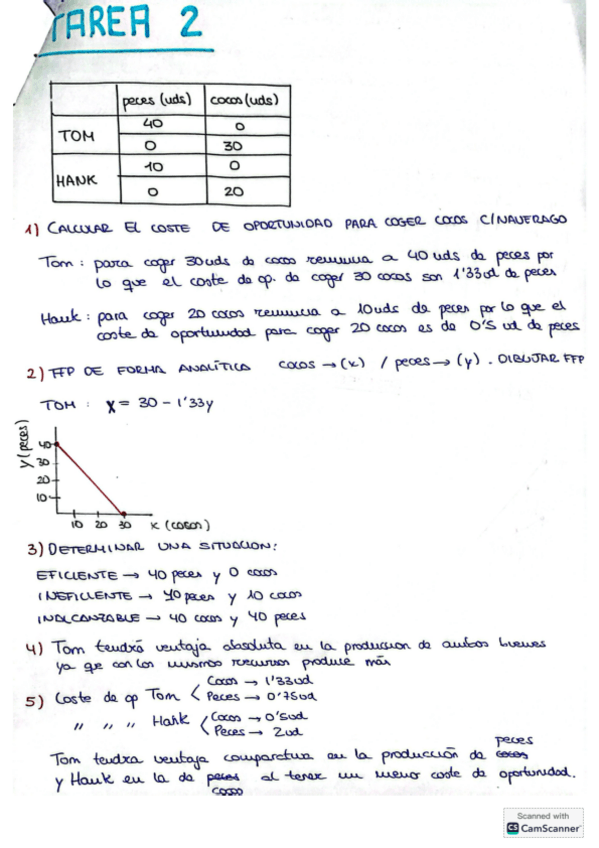 TAREA 2
peces (uds) cocos (uds)
TOM
40 0
0 30
HANK
10 0
0 20
1) CALCULAR EL COSTE DE OPORTUNIDAD PARA COGER COCOS C/NAUFRAGO
Tom: para coger 30 uds de cocos renuncia a 40 uds de peces por
lo que el coste de op. de coger 30 cocos son 1'33 ud de peces
Hank: para coger 20 cocos renuncia a 10 uds de peces por lo que el
coste de oportunidad para coger 20 cocos es de 0'5 ud de peces
2) FFP DE FORMA ANALÍTICA cocos → (x) / peces → (y). DIBUJAR FFP
TOM: X = 30 - 1'33y
y (peces)
40
30
20
10
10 20 30 x (cocos)
3) DETERMINAR UNA SITUACION:
EFICIENTE → 40 peces y 0 cocos
INEFICIENTE → 10 peces y 10 cocos
INALCANZABLE → 40 cocos y 40 peces
4) Tom tendrá ventaja absoluta en la produccion de ambos bienes
ya que con los mismos recursos produce más
5) Coste de op Tom Cocos → 1'33ud
Peces → 0'75ud
" " " Hank Cocos → 0'5ud
Peces → 2ud
peces
Tom tendra ventaja comparativa en la producción de cocos
y Hank en la de peces al tener un menor coste de oportunidad.
cocos
Scanned with
CS CamScanner